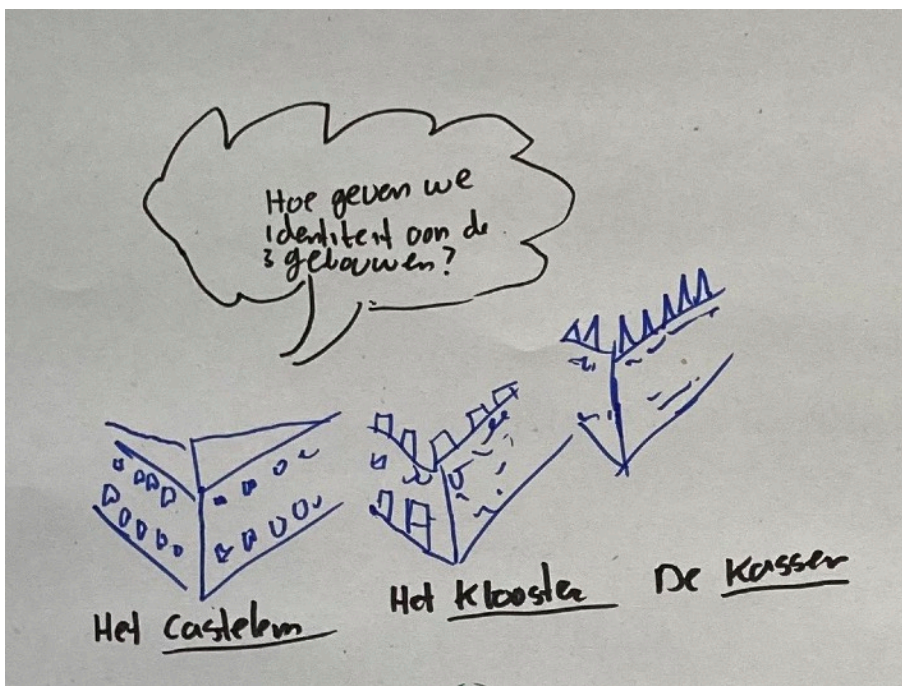 Hoe geven we
identiteit aan de
3 gebouwen?
Het Castelem
Het Klooster
De Kassen